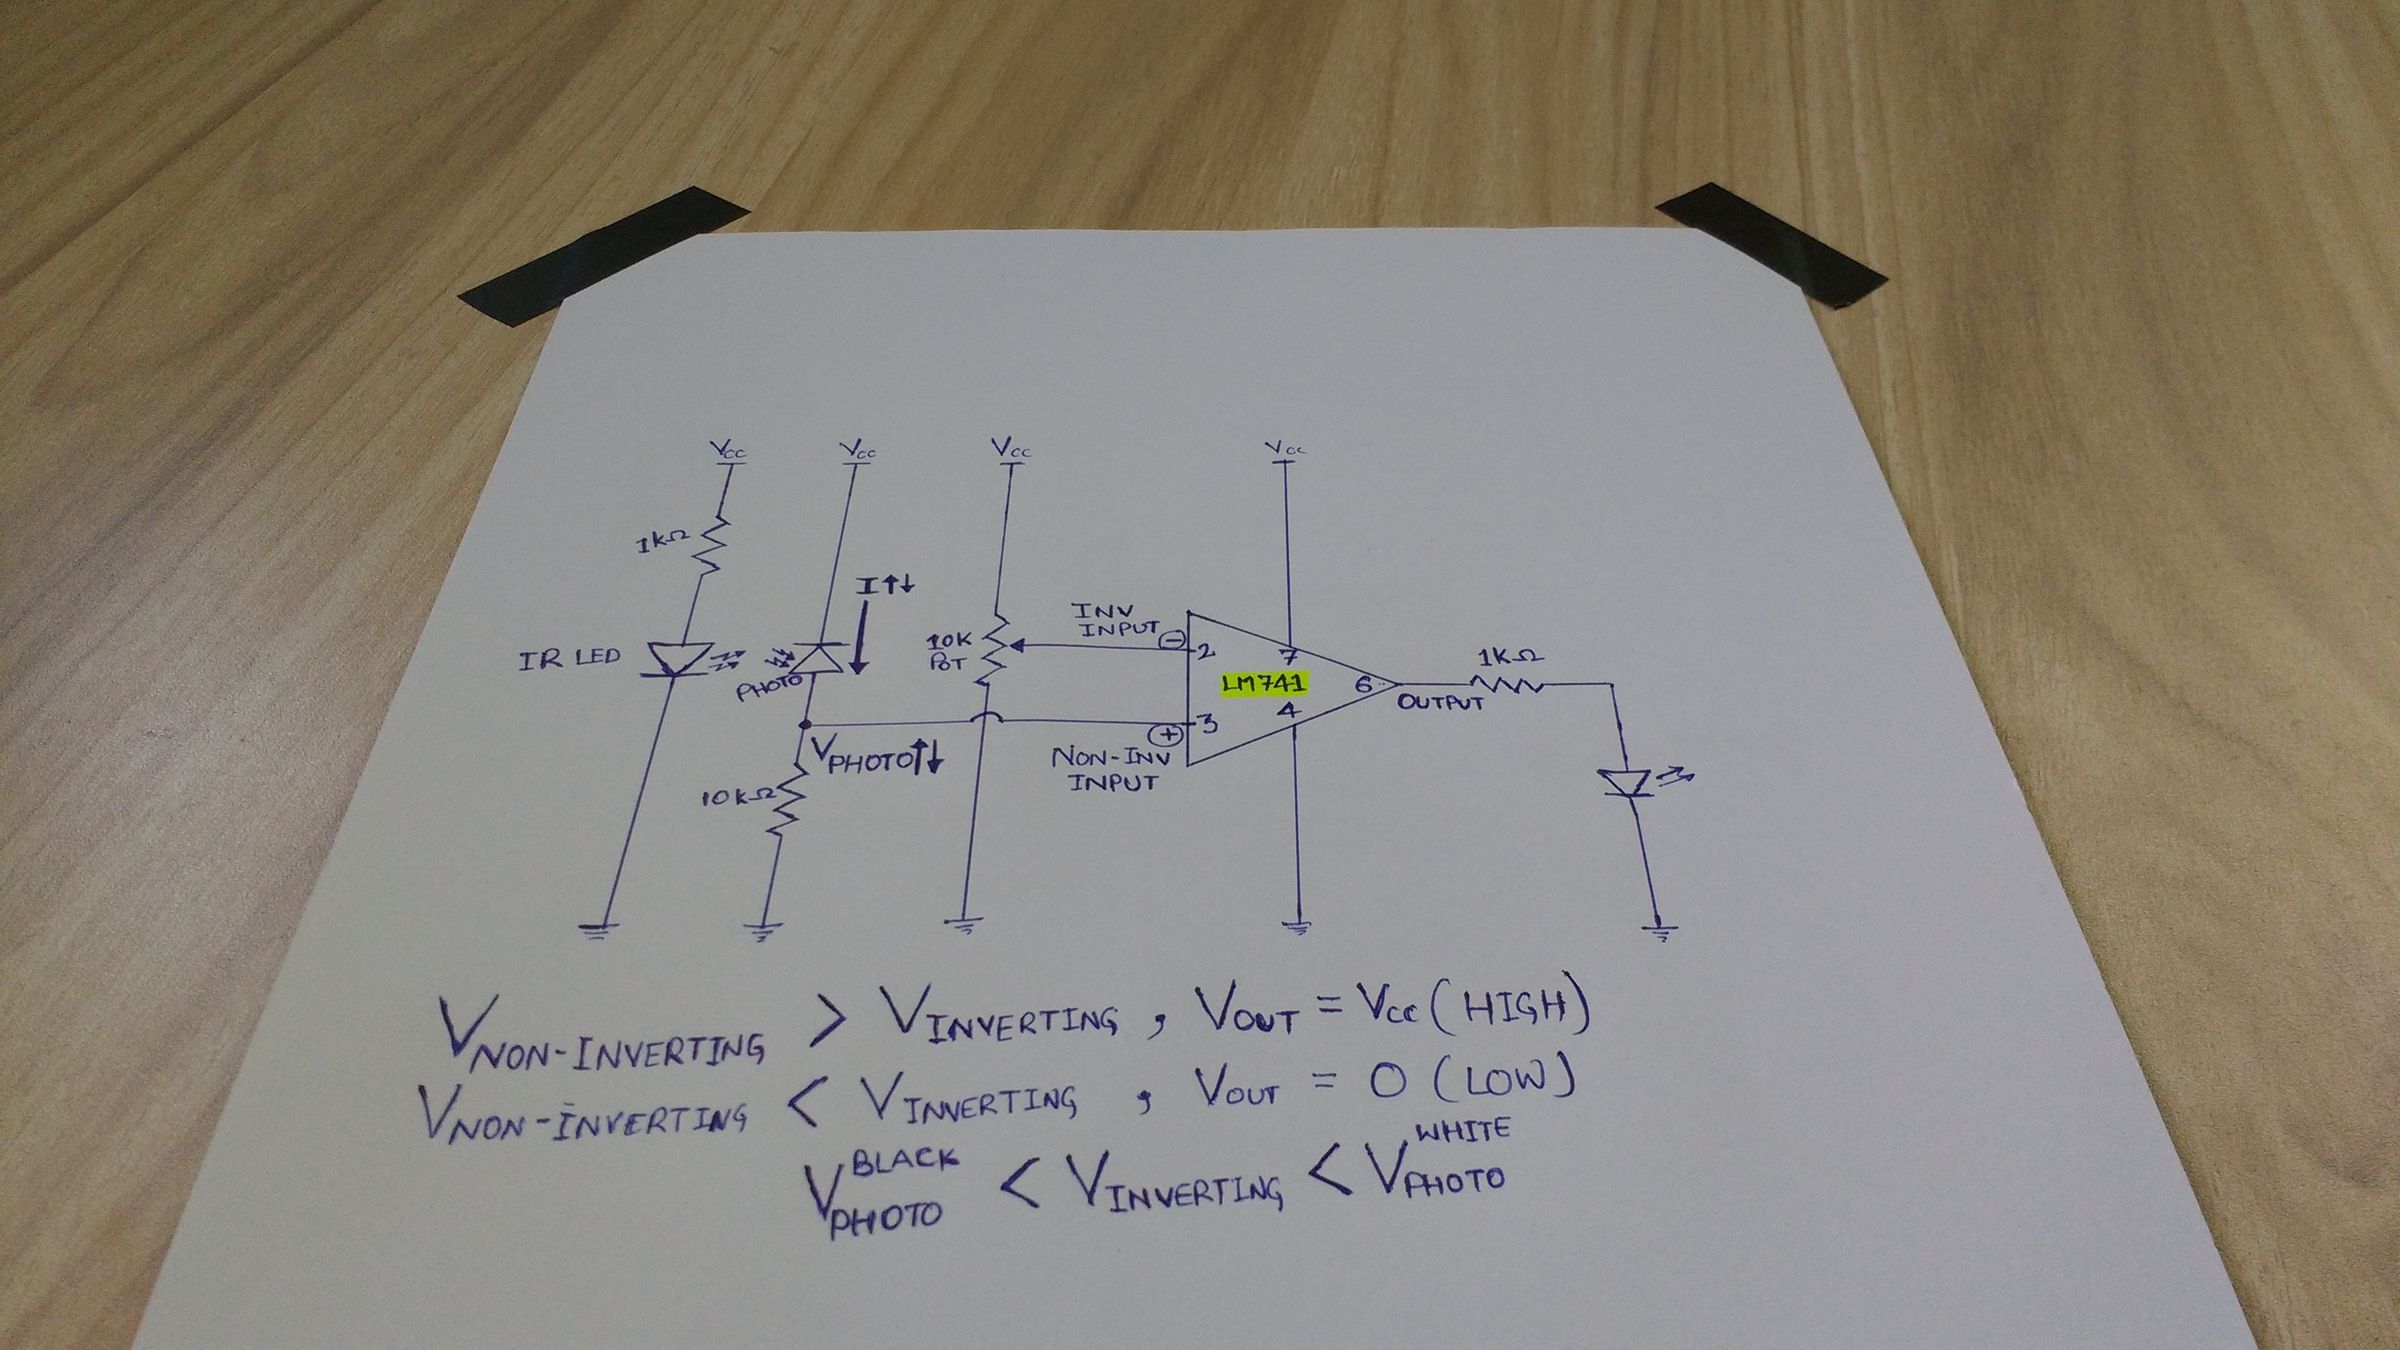 Vcc Vcc Vcc Vcc
1KΩ
I↑↓
IR LED
PHOTO
10K
POT
INV
INPUT
−
2
7
LM741
6
4
3
+
OUTPUT
1KΩ
VPHOTO↑↓
NON-INV
INPUT
10KΩ
VNON-INVERTING > VINVERTING , VOUT = Vcc (HIGH)
VNON-INVERTING < VINVERTING , VOUT = 0 (LOW)
VPHOTO BLACK < VINVERTING < VPHOTO WHITE